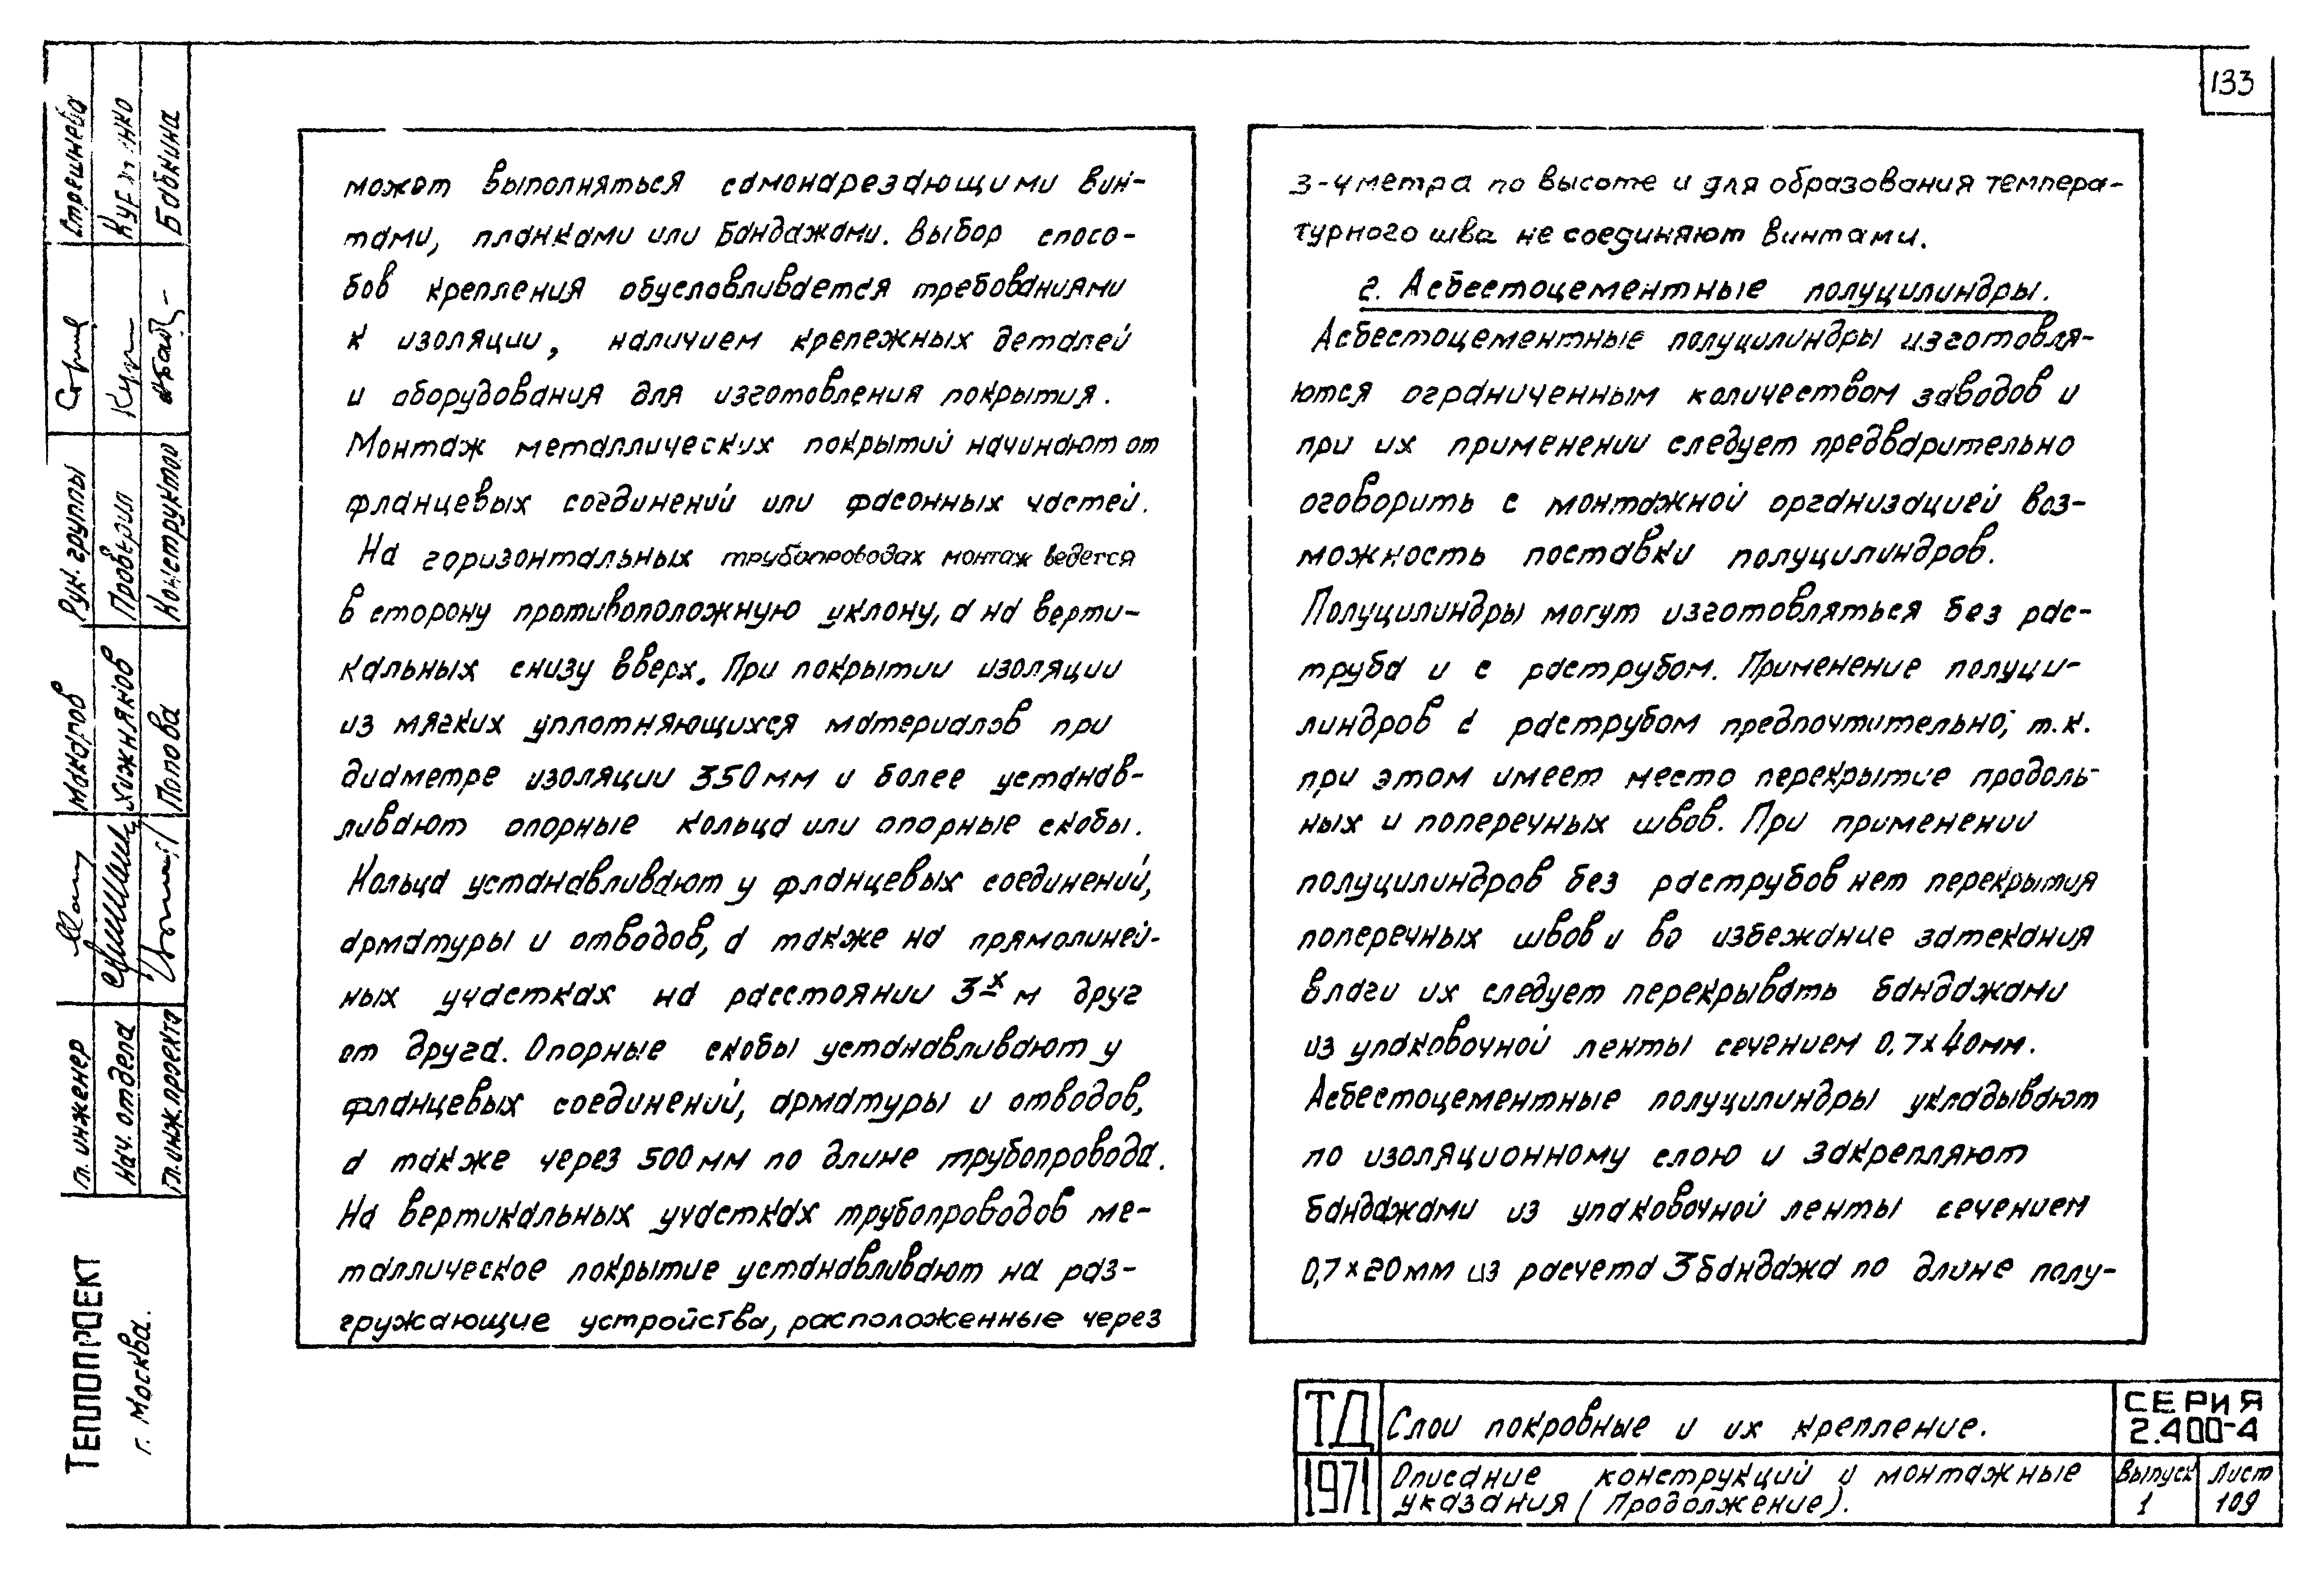 133
может выполняться самонарезающими вин-
тами, планками или бандажами. Выбор спосо-
бов крепления обуславливается требованиями
к изоляции, наличием крепежных деталей
и оборудования для изготовления покрытия.
Монтаж металлических покрытий начинают от
фланцевых соединений или фасонных частей.
На горизонтальных трубопроводах монтаж ведется
в сторону противоположную уклону, а на верти-
кальных снизу вверх. При покрытии изоляции
из мягких уплотняющихся материалов при
диаметре изоляции 350мм и более устанав-
ливают опорные кольца или опорные скобы.
Кольца устанавливают у фланцевых соединений,
арматуры и отводов, а также на прямолиней-
ных участках на расстоянии 3-х м друг
от друга. Опорные скобы устанавливают у
фланцевых соединений, арматуры и отводов,
а также через 500мм по длине трубопровода.
На вертикальных участках трубопроводов ме-
таллическое покрытие устанавливают на раз-
гружающие устройства, расположенные через
3-4 метра по высоте и для образования темпера-
турного шва не соединяют винтами.
г. Асбестоцементные полуцилиндры.
Асбестоцементные полуцилиндры изготовля-
ются ограниченным количеством заводов и
при их применении следует предварительно
оговорить с монтажной организацией воз-
можность поставки полуцилиндров.
Полуцилиндры могут изготовляться без рас-
труба и с раструбом. Применение полуци-
линдров с раструбом предпочтительно, т.к.
при этом имеет место перекрытие продоль-
ных и поперечных швов. При применении
полуцилиндров без раструбов нет перекрытия
поперечных швов и во избежание затекания
влаги их следует перекрывать бандажами
из упаковочной ленты сечением 0,7х40мм.
Асбестоцементные полуцилиндры укладывают
по изоляционному слою и закрепляют
бандажами из упаковочной ленты сечением
0,7х20мм из расчета 3 бандажа по длине полу-
ТД
Слои покровные и их крепление.
СЕРИЯ
2.400-4
1971
Описание конструкций и монтажные
указания (Продолжение).
Выпуск
1
Лист
109
Теплопроект
г. Москва.
Гл. инженер
Макаров
Рук. группы
Стрешнева
Нач. отдела
Хижняков
Проверил
Гл. инж. проекта
Попова
Конструктор
Бабкина